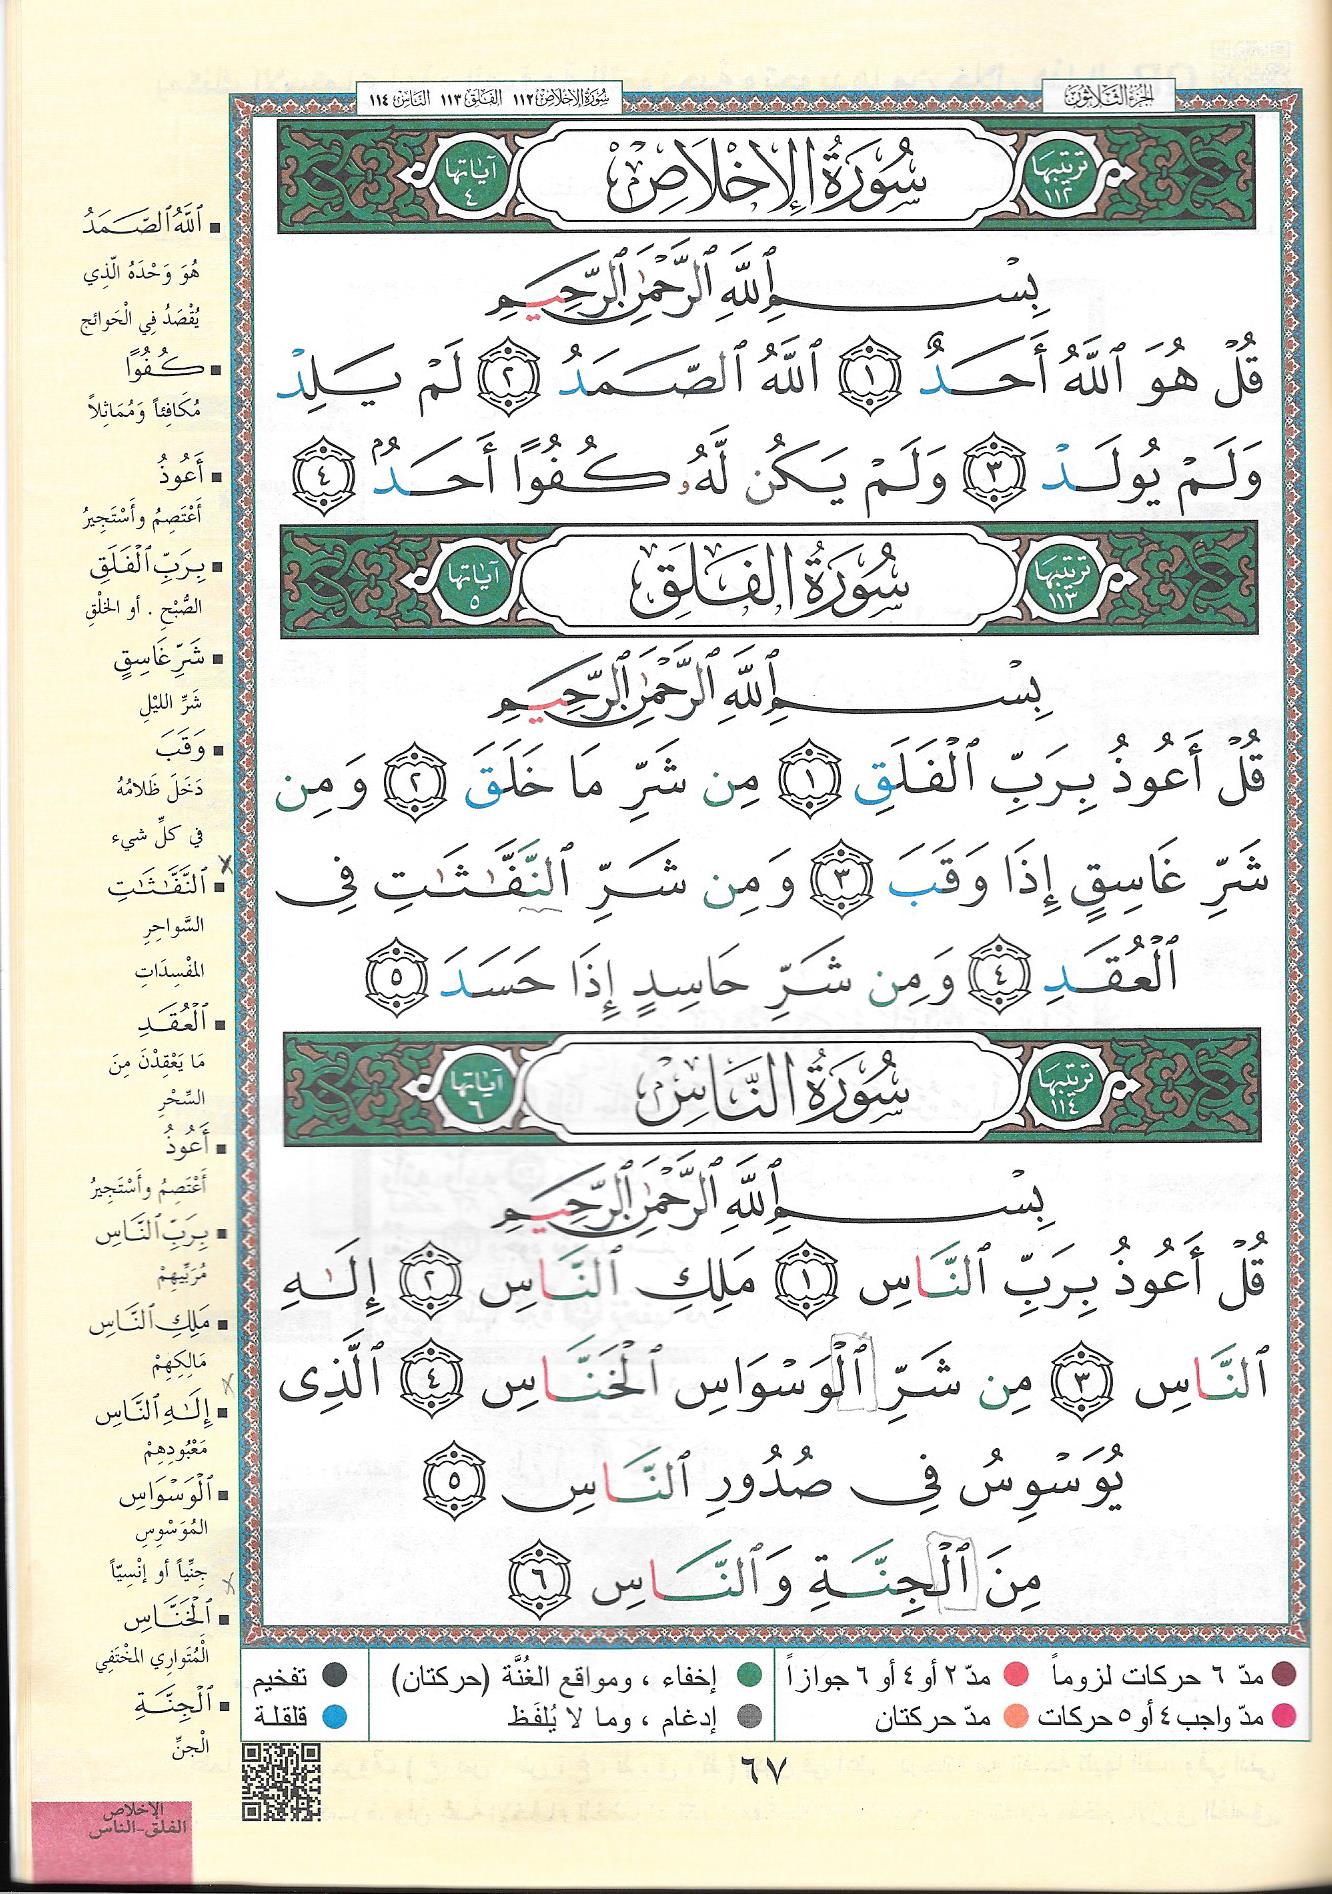 الجزء الثلاثون
سورة الإخلاص ١١٢ الفلق ١١٣ الناس ١١٤
ترتيبها ١١٢ سُورَةُ الإِخْلَاصِ آياتها ٤
بِسْمِ ٱللَّهِ ٱلرَّحْمَٰنِ ٱلرَّحِيمِ
قُلْ هُوَ ٱللَّهُ أَحَدٌ ١ ٱللَّهُ ٱلصَّمَدُ ٢ لَمْ يَلِدْ
وَلَمْ يُولَدْ ٣ وَلَمْ يَكُن لَّهُۥ كُفُوًا أَحَدٌۢ ٤
ترتيبها ١١٣ سُورَةُ الفَلَقِ آياتها ٥
بِسْمِ ٱللَّهِ ٱلرَّحْمَٰنِ ٱلرَّحِيمِ
قُلْ أَعُوذُ بِرَبِّ ٱلْفَلَقِ ١ مِن شَرِّ مَا خَلَقَ ٢ وَمِن
شَرِّ غَاسِقٍ إِذَا وَقَبَ ٣ وَمِن شَرِّ ٱلنَّفَّٰثَٰتِ فِى
ٱلْعُقَدِ ٤ وَمِن شَرِّ حَاسِدٍ إِذَا حَسَدَ ٥
ترتيبها ١١٤ سُورَةُ النَّاسِ آياتها ٦
بِسْمِ ٱللَّهِ ٱلرَّحْمَٰنِ ٱلرَّحِيمِ
قُلْ أَعُوذُ بِرَبِّ ٱلنَّاسِ ١ مَلِكِ ٱلنَّاسِ ٢ إِلَٰهِ
ٱلنَّاسِ ٣ مِن شَرِّ ٱلْوَسْوَاسِ ٱلْخَنَّاسِ ٤ ٱلَّذِى
يُوَسْوِسُ فِى صُدُورِ ٱلنَّاسِ ٥
مِنَ ٱلْجِنَّةِ وَٱلنَّاسِ ٦
ٱللَّهُ ٱلصَّمَدُ
هُوَ وَحْدَهُ الَّذِي
يُقْصَدُ فِي الْحَوائج
كُفُوًا
مُكَافِئاً وَمُمَاثِلاً
أَعُوذُ
أَعْتَصِمُ وأَسْتَجِيرُ
بِرَبِّ ٱلْفَلَقِ
الصُّبْحِ . أو الخلْقِ
شَرِّ غَاسِقٍ
شَرِّ الليْلِ
وَقَبَ
دَخَلَ ظَلامُهُ
في كلِّ شيء
ٱلنَّفَّٰثَٰتِ
السَّواحِرِ
المفْسِدَاتِ
ٱلْعُقَدِ
مَا يَعْقِدْنَ مِنَ
السِّحْرِ
أَعُوذُ
أَعْتَصِمُ وأَسْتَجِيرُ
بِرَبِّ ٱلنَّاسِ
مُرَبِّيهِمْ
مَلِكِ ٱلنَّاسِ
مَالِكِهِمْ
إِلَٰهِ ٱلنَّاسِ
مَعْبُودِهِمْ
ٱلْوَسْوَاسِ
المُوَسْوِسِ
جِنِّياً أو إنْسِيّاً
ٱلْخَنَّاسِ
الْمُتَوارِي المخْتَفِي
ٱلْجِنَّةِ
الْجنِّ
مدّ ٦ حركات لزوماً مدّ ٢ أو ٤ أو ٦ جوازاً إخفاء ، ومواقع الغُنَّة (حركتان) تفخيم
مدّ واجب ٤ أو ٥ حركات مدّ حركتان إدغام ، وما لا يُلفَظ قلقلة
٦٧
الإخلاص
الفلق-الناس